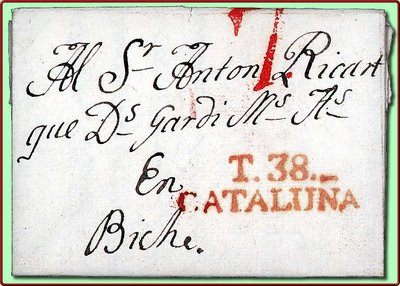 7
Al Sr Anton Ricart
que Ds Gardi Ms As
En
T.38.
CATALUNA
Biche.